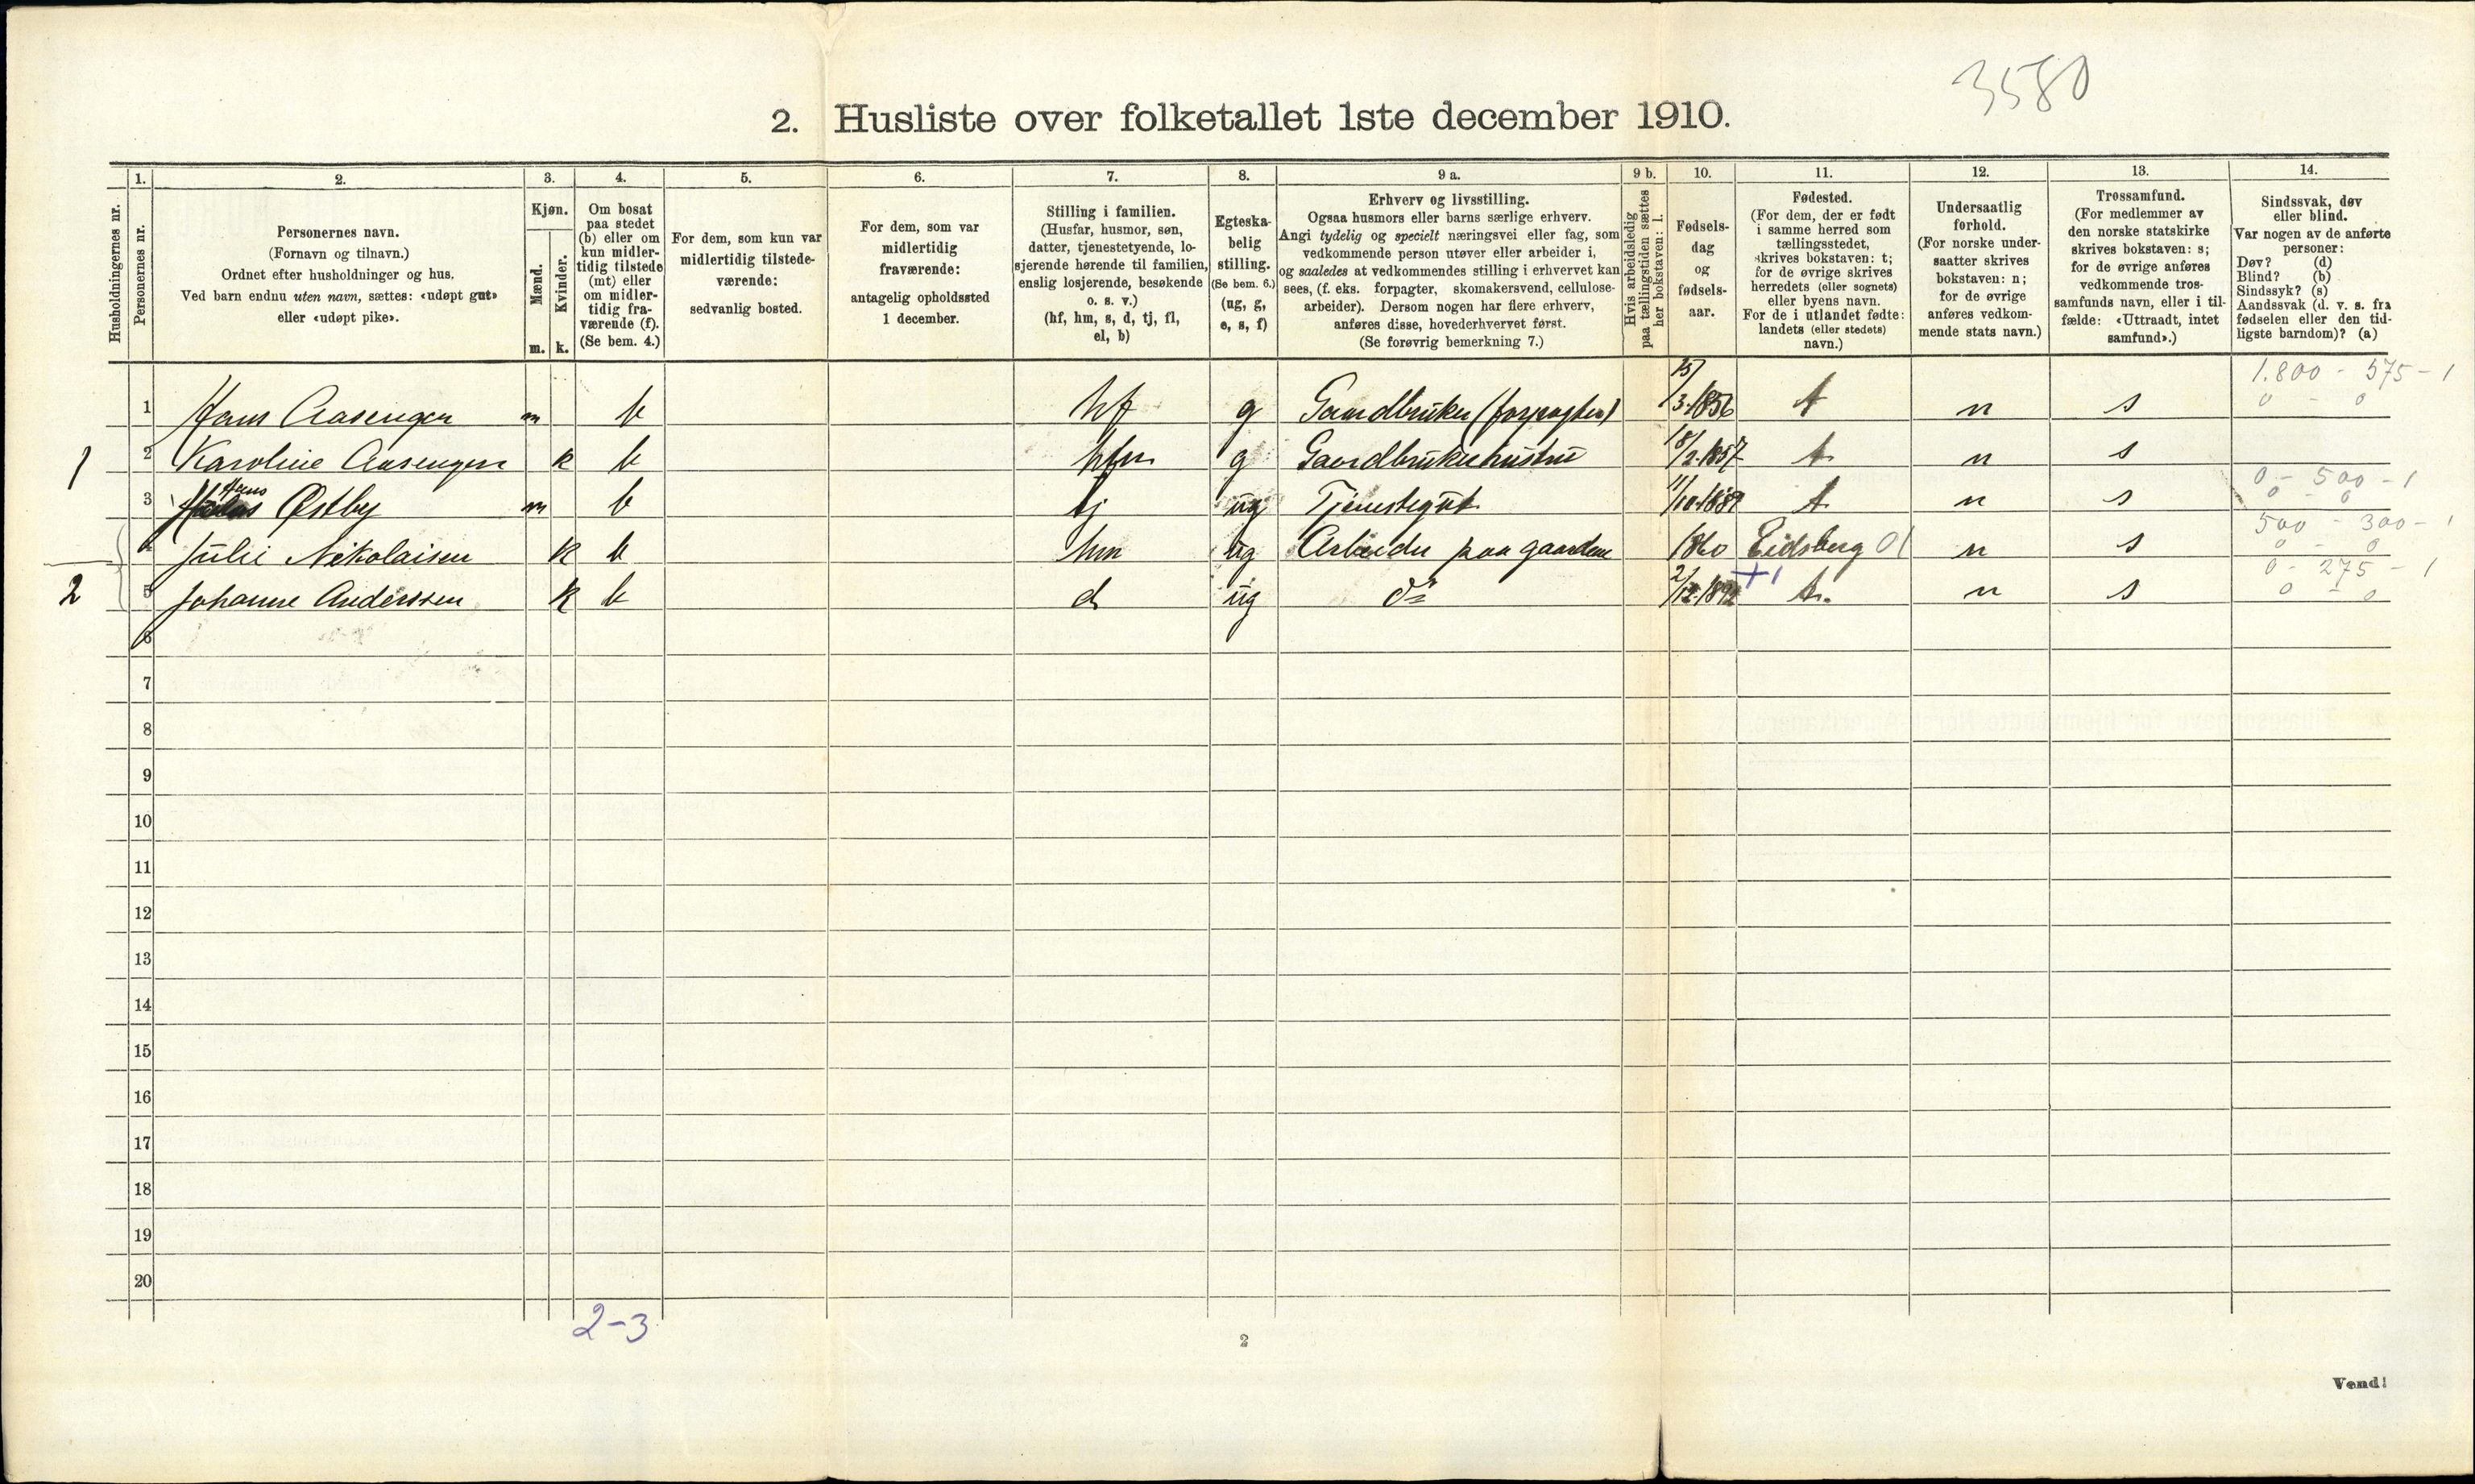 3580
2. Husliste over folketallet 1ste december 1910.
Husholdningernes nr.
1.
Personernes nr.
2.
Personernes navn.
(Fornavn og tilnavn.)
Ordnet efter husholdninger og hus.
Ved barn endnu uten navn, sættes: «udøpt gut»
eller «udøpt pike».
3.
Kjøn.
Mænd.
Kvinder.
m. k.
4.
Om bosat
paa stedet
(b) eller om
kun midler-
tidig tilstede
(mt) eller
om midler-
tidig fra-
værende (f).
(Se bem. 4.)
5.
For dem, som kun var
midlertidig tilstede-
værende:
sedvanlig bosted.
6.
For dem, som var
midlertidig
fraværende:
antagelig opholdssted
1 december.
7.
Stilling i familien.
(Husfar, husmor, søn,
datter, tjenestetyende, lo-
sjerende hørende til familien,
enslig losjerende, besøkende
o. s. v.)
(hf, hm, s, d, tj, fl,
el, b)
8.
Egteska-
belig
stilling.
(Se bem. 6.)
(ug, g,
e, s, f)
9 a.
Erhverv og livsstilling.
Ogsaa husmors eller barns særlige erhverv.
Angi tydelig og specielt næringsvei eller fag, som
vedkommende person utøver eller arbeider i,
og saaledes at vedkommendes stilling i erhvervet kan
sees, (f. eks. forpagter, skomakersvend, cellulose-
arbeider). Dersom nogen har flere erhverv,
anføres disse, hovederhvervet først.
(Se forøvrig bemerkning 7.)
9 b.
Hvis arbeidsledig
paa tællingstiden sættes
her bokstaven: l.
10.
Fødsels-
dag
og
fødsels-
aar.
11.
Fødested.
(For dem, der er født
i samme herred som
tællingsstedet,
skrives bokstaven: t;
for de øvrige skrives
herredets (eller sognets)
eller byens navn.
For de i utlandet fødte:
landets (eller stedets)
navn.)
12.
Undersaatlig
forhold.
(For norske under-
saatter skrives
bokstaven: n;
for de øvrige
anføres vedkom-
mende stats navn.)
13.
Trossamfund.
(For medlemmer av
den norske statskirke
skrives bokstaven: s;
for de øvrige anføres
vedkommende tros-
samfunds navn, eller i til-
fælde: «Uttraadt, intet
samfund».)
14.
Sindssvak, døv
eller blind.
Var nogen av de anførte
personer:
Døv? (d)
Blind? (b)
Sindssyk? (s)
Aandssvak (d. v. s. fra
fødselen eller den tid-
ligste barndom)? (a)
1 Hans Aasengen m b hf g Gaardbruker (forpagter) 15/3-1856 t n s 1.800 - 575 - 1
0 - 0
1 2 Karoline Aasengen k b hm g Gaardbrukerhustru 18/2-1857 t n s
3 Hans Østby m b tj ug Tjenestegut 11/10-1889 t n s 0 - 500 - 1
0 - 0
4 Julie Nikolaisen k b hm ug Arbeider paa gaardene 1860 Eidsberg 01 n s 500 - 300 - 1
0 - 0
2 5 Johanne Anderssen k b d ug do 2/12-1892 +1 t. n s 0 - 275 - 1
0 - 0
6
7
8
9
10
11
12
13
14
15
16
17
18
19
20
2-3
2
Vend!